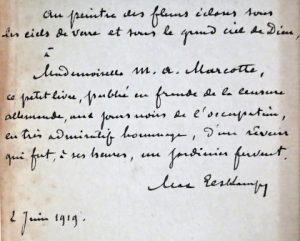 Au peintre des fleurs écloses sous
les ciels de verre et sous le grand ciel de Dieu,
à
Mademoiselle M. A. Marcotte,
ce petit livre, publié en fraude de la censure
allemande, aux jours noirs de l'occupation,
en très admiratif hommage, d'un rêveur
qui fut, à ses heures, un jardinier fervent.
Max Elskamp
2 Juin 1919.